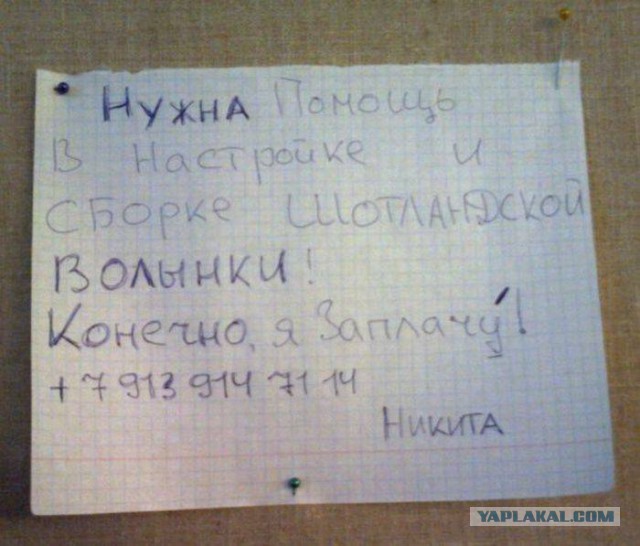 Нужна Помощь
в Настройке и
сборке Шотландской
Волынки!
Конечно, я Заплачу́!
+7 913 914 71 14
Никита
YAPLAKAL.COM